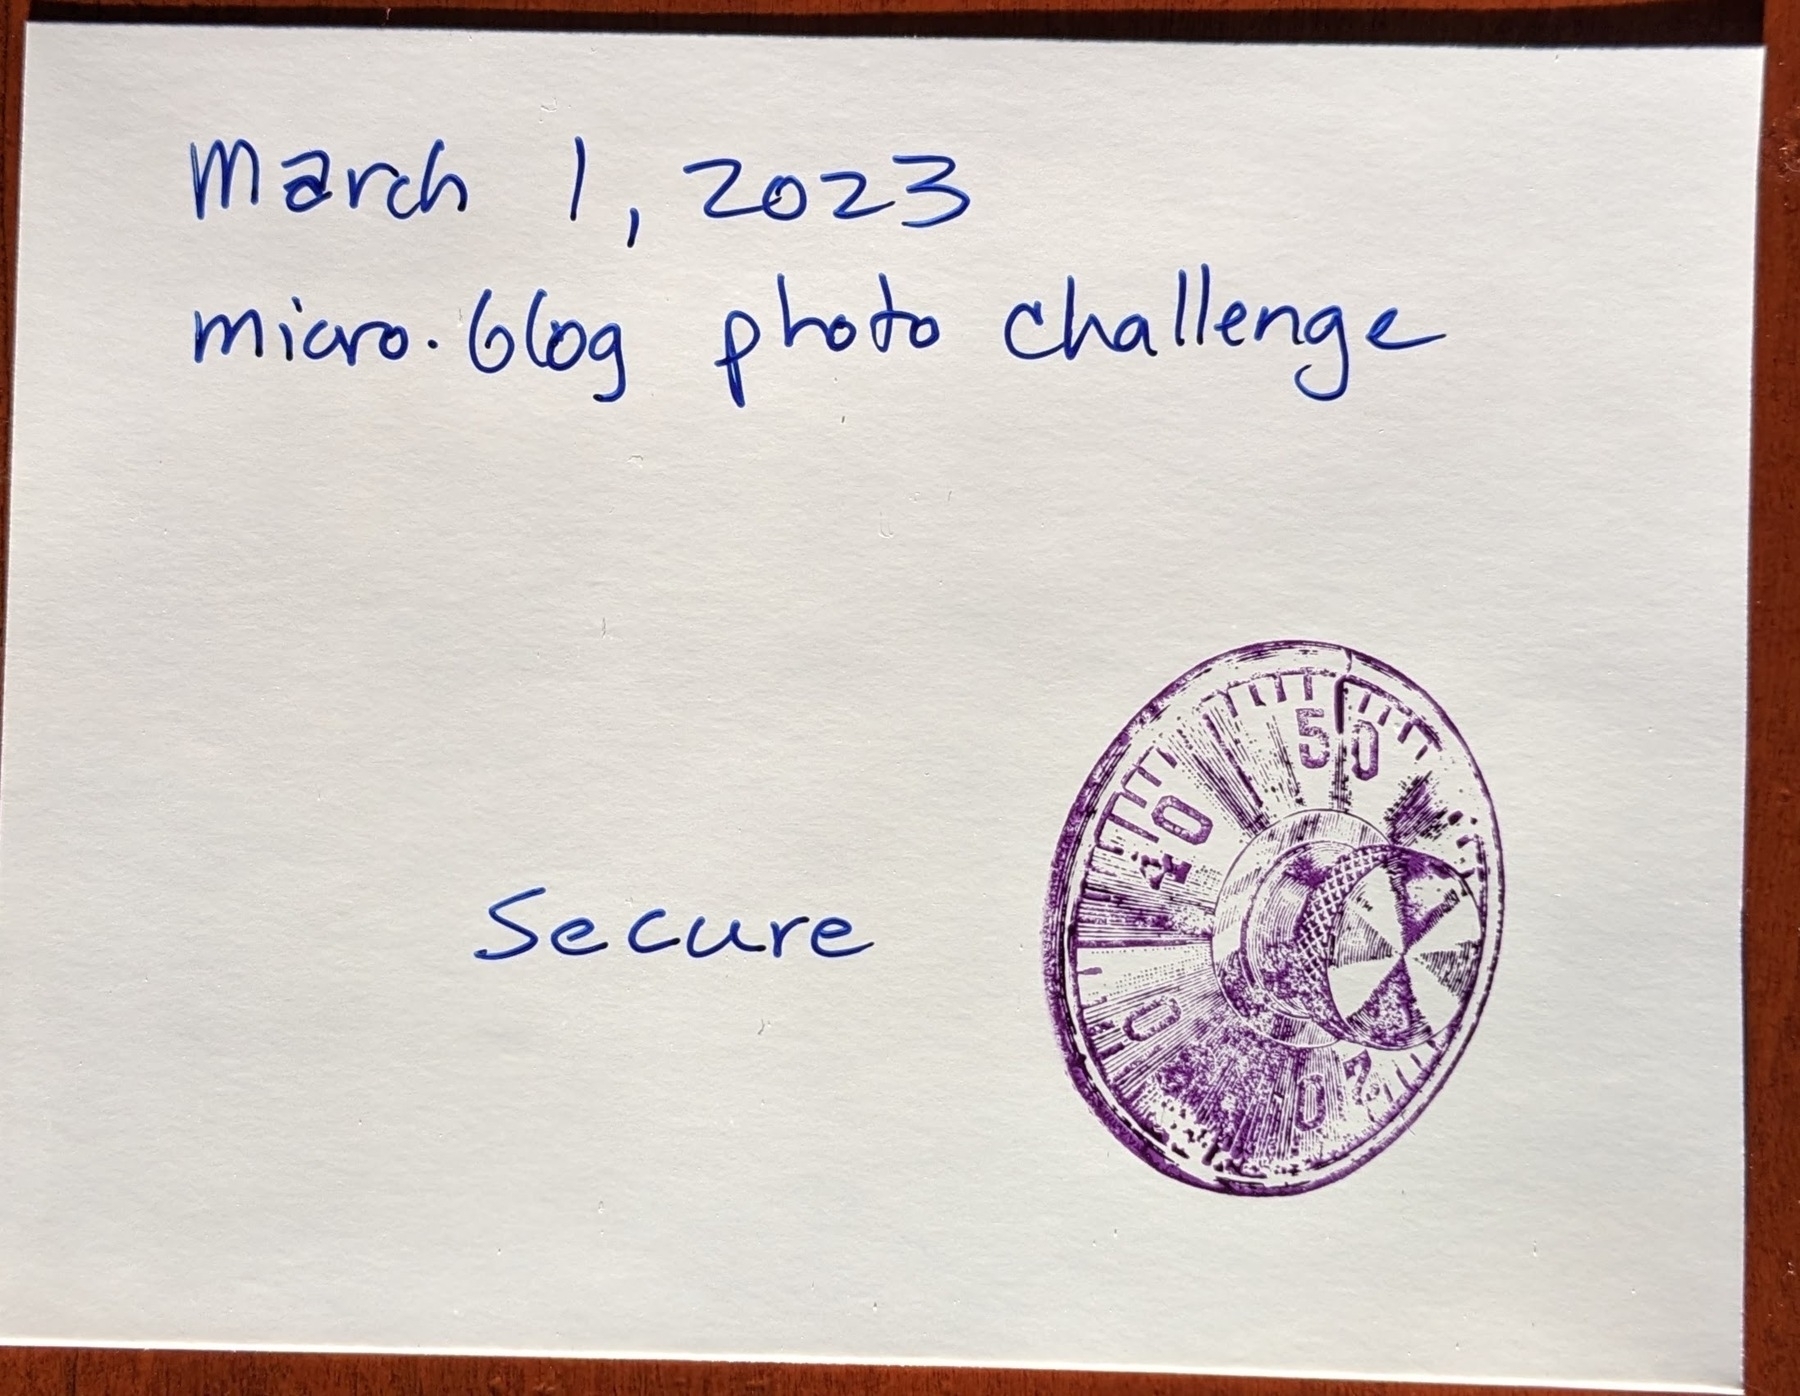 March 1, 2023
micro.blog photo challenge
50
40
Secure
0
20